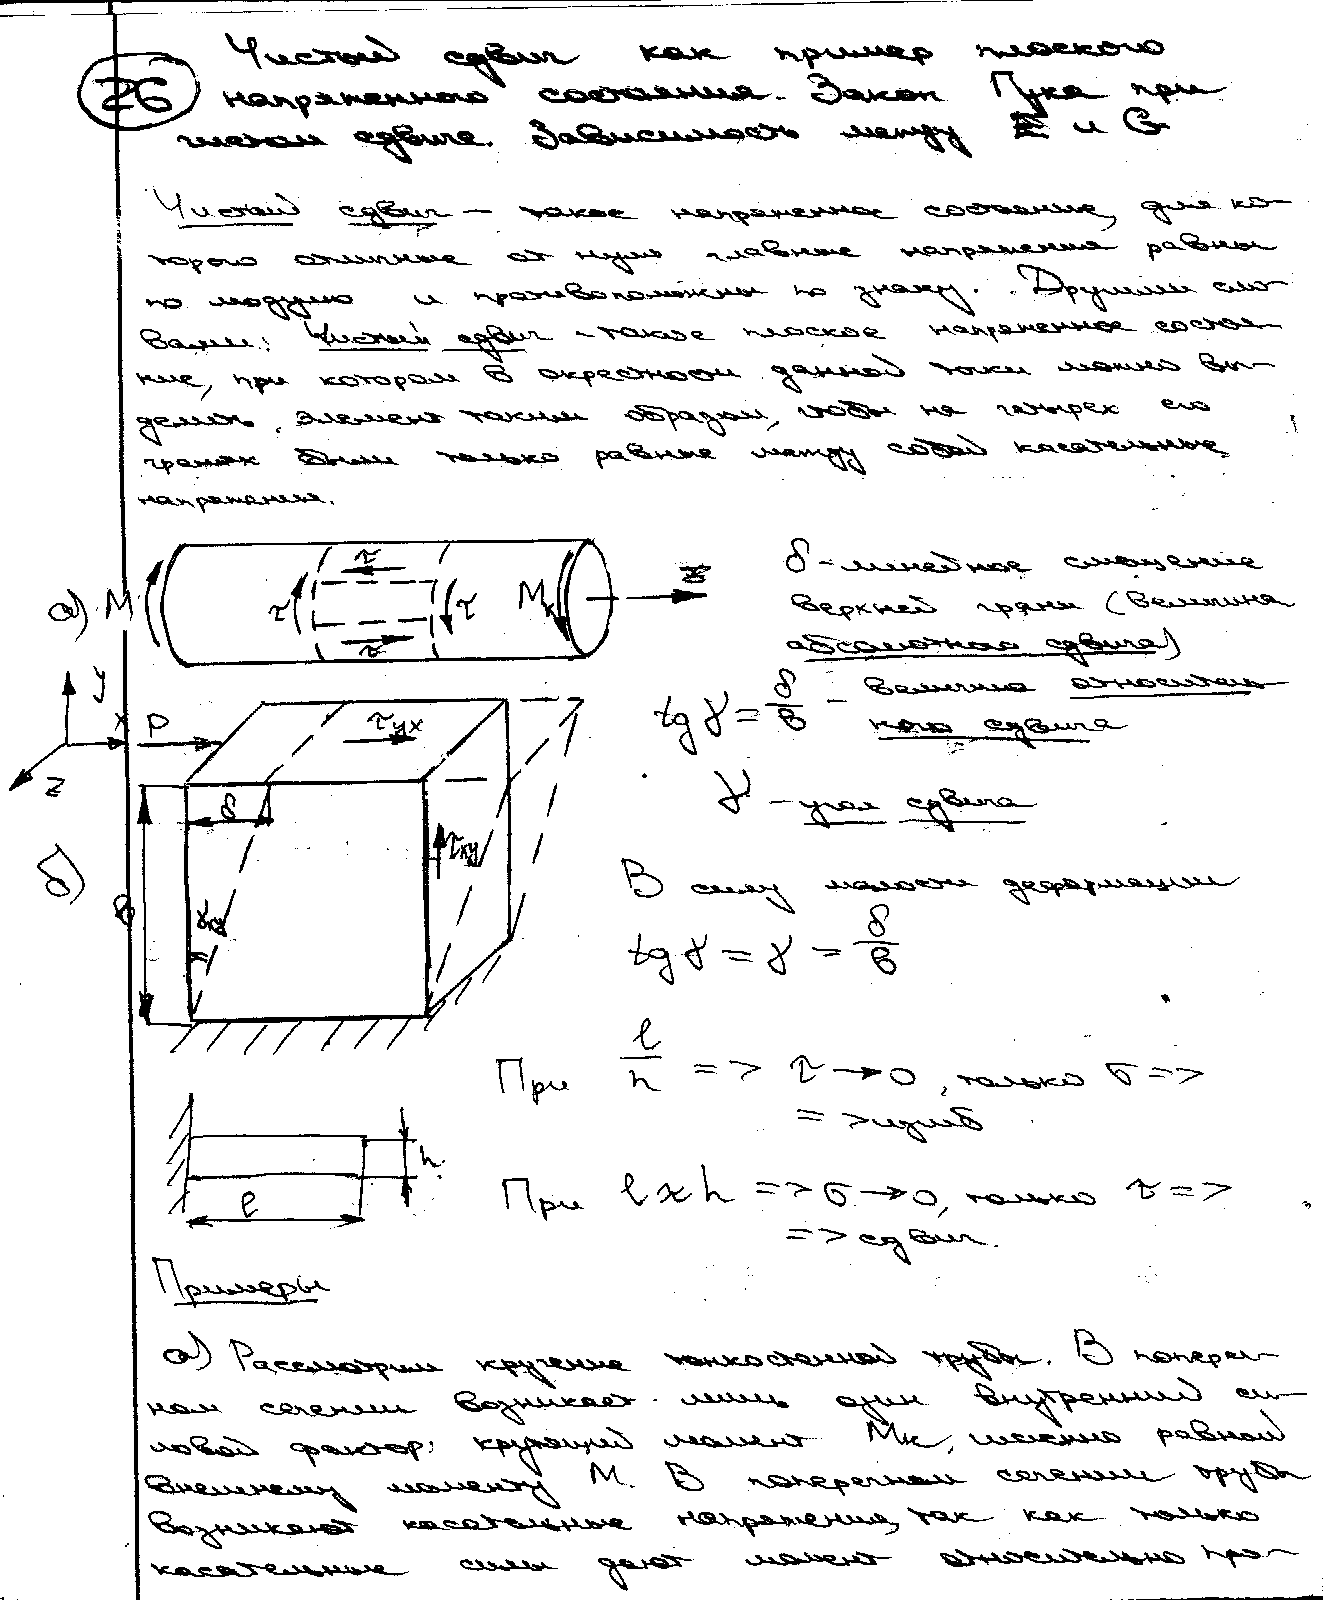 26
Чистый сдвиг как пример плоского
напряженного состояния. Закон Гука при
чистом сдвиге. Зависимость между E и G
Чистый сдвиг – такое напряженное состояние, для ко-
торого отличные от нуля главные напряжения равны
по модулю и противоположны по знаку. Другими сло-
вами: Чистый сдвиг - такое плоское напряженное состоя-
ние, при котором в окрестности данной точки можно вы-
делить элемент таким образом, чтобы на четырех его
гранях были только равные между собой касательные
напряжения.
а) M τ τ τ τ Mк z
δ - линейное смещение
верхней грани (величина
абсолютного сдвига)
tg γ = δ/в - величина относитель
ного сдвига
γ - угол сдвига
y x z P τyx
δ τxy γxy в
б)
В силу малости деформации
tg γ = γ = δ/в
При l/h => τ → 0, только σ =>
=> изгиб
h
l
При l x h => σ → 0, только τ =>
=> сдвиг.
Примеры
а) Рассмотрим кручение тонкостенной трубы. В попереч-
ном сечении возникает лишь один внутренний си-
ловой фактор: крутящий момент Mк, равный
внешнему моменту M. В поперечном сечении трубы
возникают касательные напряжения, так как только
касательные силы дают момент относительно про-